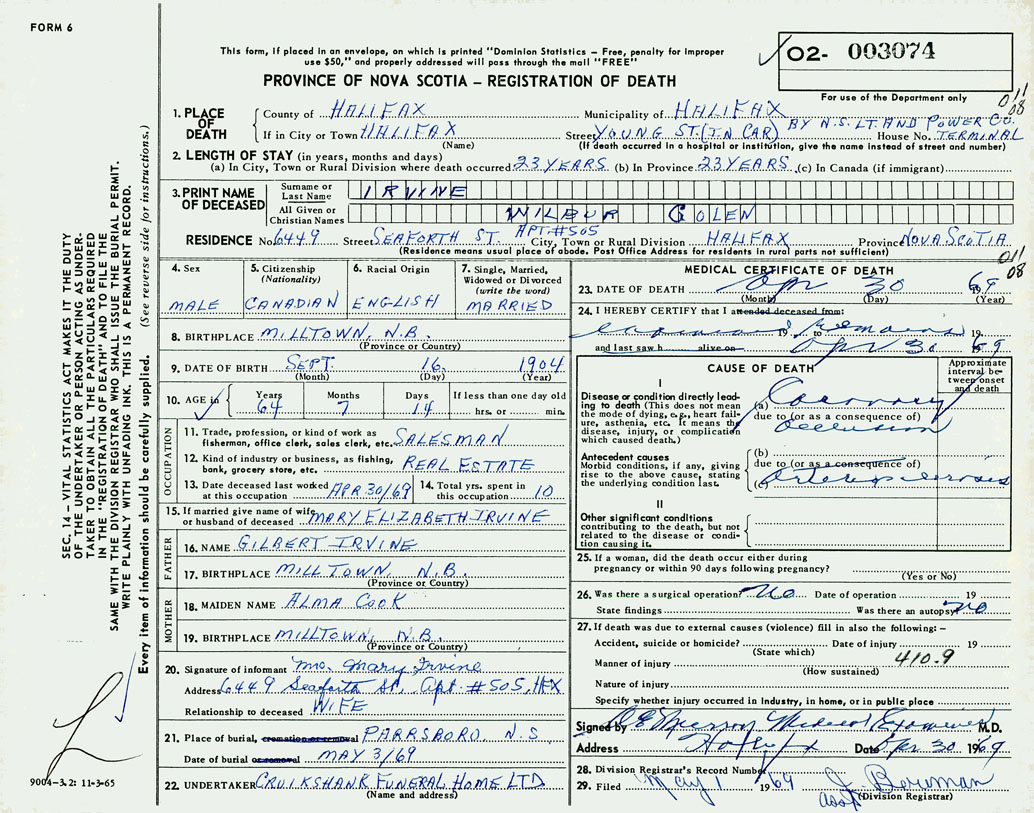 FORM 6
This form, if placed in an envelope, on which is printed "Dominion Statistics – Free, penalty for improper
use $50," and properly addressed will pass through the mail "FREE"
PROVINCE OF NOVA SCOTIA – REGISTRATION OF DEATH
02- 003074
For use of the Department only
011
08
1. PLACE OF DEATH
County of HALIFAX Municipality of HALIFAX
If in City or Town HALIFAX Street YOUNG ST. (IN CAR) BY N.S. LT. AND POWER CO. House No. TERMINAL
(Name) (If death occurred in a hospital or institution, give the name instead of street and number)
2. LENGTH OF STAY (in years, months and days)
(a) In City, Town or Rural Division where death occurred 23 YEARS (b) In Province 23 YEARS (c) In Canada (if immigrant)
3. PRINT NAME OF DECEASED
Surname or Last Name IRVINE
All Given or Christian Names WILBUR COLEN
RESIDENCE No. 6449 Street SEAFORTH ST. APT. #505 City, Town or Rural Division HALIFAX Province NOVA SCOTIA
(Residence means usual place of abode. Post Office Address for residents in rural parts not sufficient)
011
08
4. Sex MALE
5. Citizenship (Nationality) CANADIAN
6. Racial Origin ENGLISH
7. Single, Married, Widowed or Divorced (write the word) MARRIED
8. BIRTHPLACE MILLTOWN, N.B.
(Province or Country)
9. DATE OF BIRTH SEPT. 16, 1904
(Month) (Day) (Year)
10. AGE in Years 64 Months 7 Days 14 If less than one day old hrs. or min.
OCCUPATION
11. Trade, profession, or kind of work as
fisherman, office clerk, sales clerk, etc. SALESMAN
12. Kind of industry or business, as fishing,
bank, grocery store, etc. REAL ESTATE
13. Date deceased last worked
at this occupation APR 30/69
14. Total yrs. spent in
this occupation 10
15. If married give name of wife
or husband of deceased MARY ELIZABETH IRVINE
FATHER
16. NAME GILBERT IRVINE
17. BIRTHPLACE MILLTOWN, N.B.
(Province or Country)
MOTHER
18. MAIDEN NAME ALMA COOK
19. BIRTHPLACE MILLTOWN, N.B.
(Province or Country)
20. Signature of informant Mrs. Mary Irvine
Address 6449 Seaforth St, Apt. #505, HFX
Relationship to deceased WIFE
21. Place of burial, cremation or removal PARRSBORO, N.S.
Date of burial or removal MAY 3/69
22. UNDERTAKER CRUIKSHANK FUNERAL HOME LTD
(Name and address)
MEDICAL CERTIFICATE OF DEATH
23. DATE OF DEATH Apr 30 1969
(Month) (Day) (Year)
24. I HEREBY CERTIFY that I attended deceased from:
19 to remains 19
and last saw h alive on Apr 30 1969
CAUSE OF DEATH
Approximate interval between onset and death
I
Disease or condition directly leading
to death (This does not mean
the mode of dying, e.g., heart failure,
asthenia, etc. It means the
disease, injury, or complication
which caused death.)
(a) Coronary
due to (or as a consequence of)
occlusion
Antecedent causes
Morbid conditions, if any, giving
rise to the above cause, stating
the underlying condition last.
(b)
due to (or as a consequence of)
(c) arteriosclerosis
II
Other significant conditions
contributing to the death, but not
related to the disease or condition
causing it.
25. If a woman, did the death occur either during
pregnancy or within 90 days following pregnancy?
(Yes or No)
26. Was there a surgical operation? No Date of operation 19
State findings Was there an autopsy? No
27. If death was due to external causes (violence) fill in also the following: –
Accident, suicide or homicide? Date of injury 19
(State which)
Manner of injury 410.9
(How sustained)
Nature of injury
Specify whether injury occurred in Industry, in home, or in public place
Signed by Medical Examiner M.D.
Address Halifax Date Apr. 30 1969
28. Division Registrar's Record Number
29. Filed May 1 1969 J. Bowman
(Division Registrar)
SEC. 14 – VITAL STATISTICS ACT MAKES IT THE DUTY
OF THE UNDERTAKER OR PERSON ACTING AS UNDER-
TAKER TO OBTAIN ALL THE PARTICULARS REQUIRED
IN THE "REGISTRATION OF DEATH" AND TO FILE THE
SAME WITH THE DIVISION REGISTRAR WHO SHALL ISSUE THE BURIAL PERMIT.
WRITE PLAINLY WITH UNFADING INK. THIS IS A PERMANENT RECORD.
Every item of information should be carefully supplied. (See reverse side for instructions.)
9004–3.2: 11-3-65